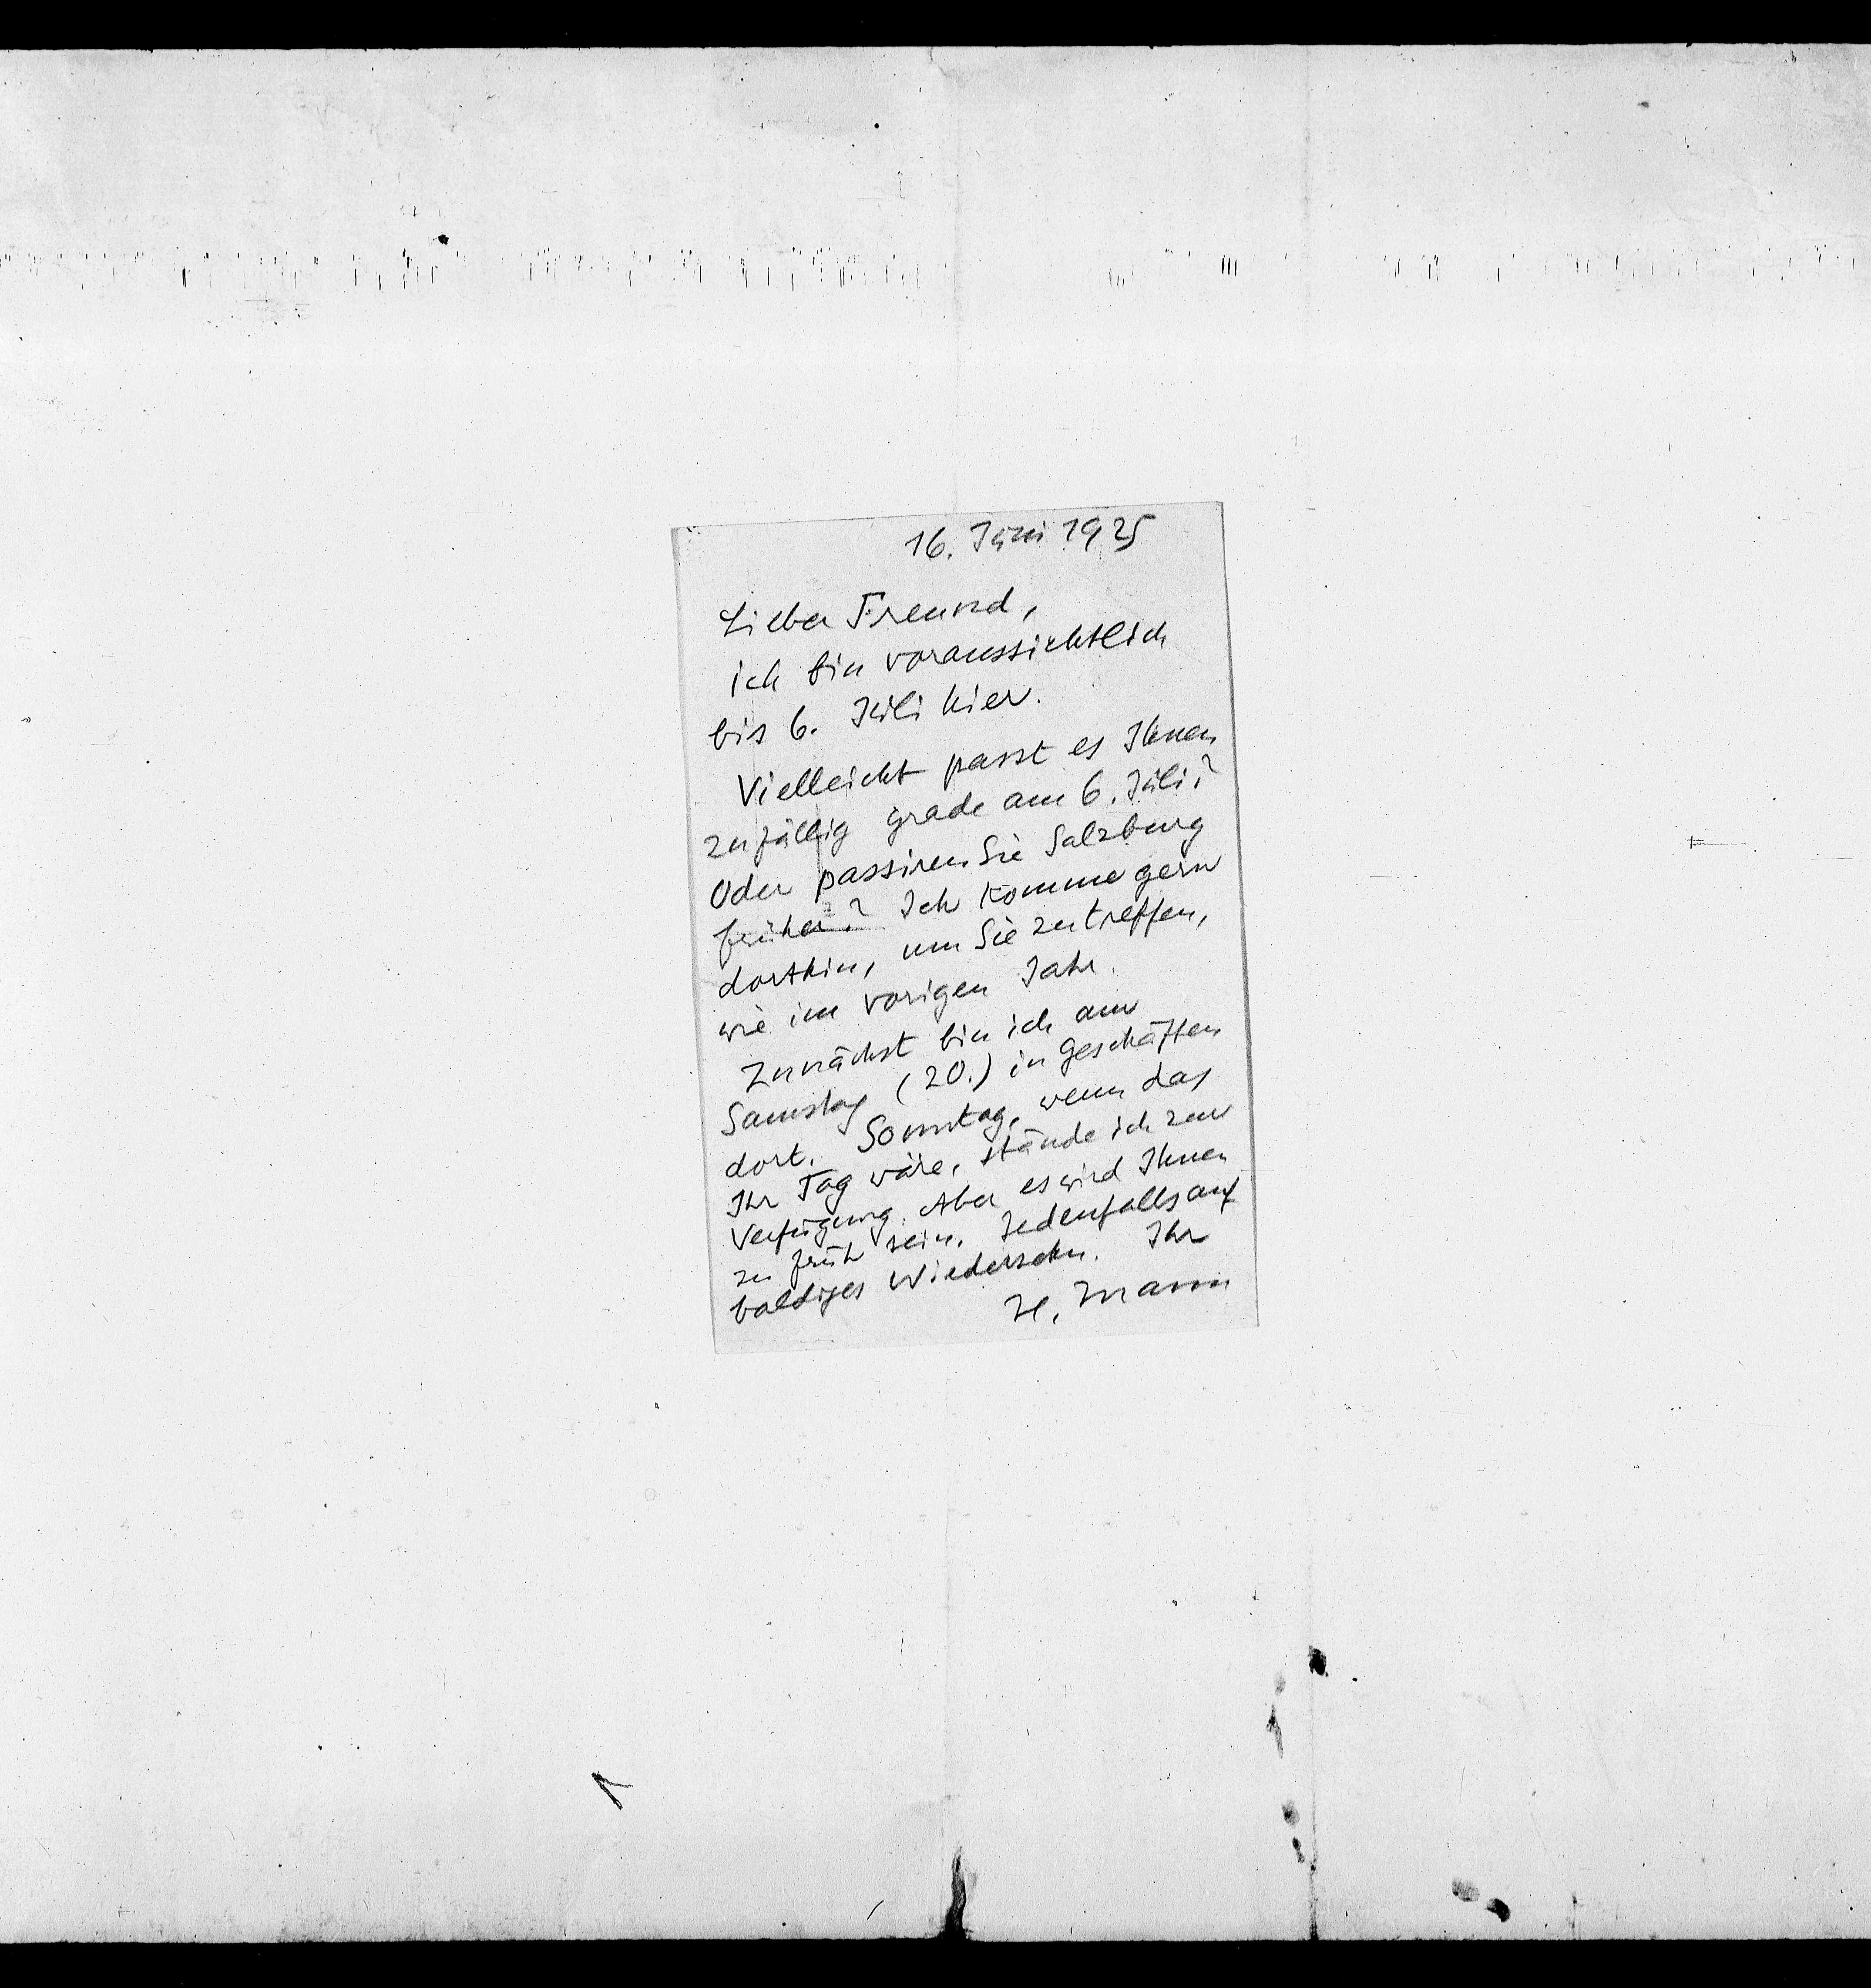 16. Juni 1925
Lieber Freund,
ich bin voraussichtlich
bis 6. Juli hier.
Vielleicht passt es Ihnen
zufällig grade am 6. Juli?
Oder passiren Sie Salzburg
früher? Ich komme gern
dorthin, um Sie zu treffen,
wie im vorigen Jahr.
Zunächst bin ich am
Samstag (20.) in Geschäften
dort. Sonntag, wenn das
Ihr Tag wäre, stände ich zur
Verfügung. Aber es wird Ihnen
zu früh sein. Jedenfalls auf
baldiges Wiedersehn. Ihr
H. Mann